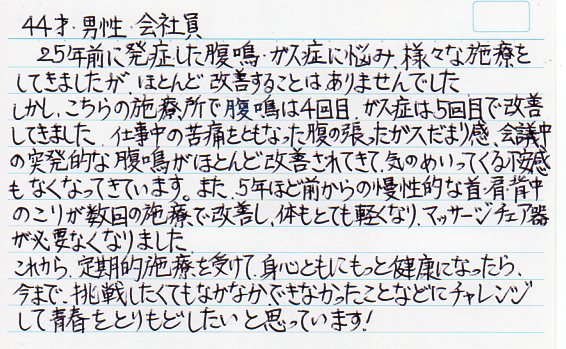 44才・男性・会社員
25年前に発症した腹鳴・ガス症に悩み、様々な施療を
してきましたが、ほとんど改善することはありませんでした
しかし、こちらの施療所で腹鳴は4回目 ガス症は5回目で改善
してきました、仕事中の苦痛をともなった腹の張ったガスだまり感、会議中
の突発的な腹鳴がほとんど改善されてきて、気のめいってくる不安感
もなくなってきています。また、5年ほど前からの慢性的な首・肩背中
のこりが数回の施療で改善し、体もとても軽くなり、マッサージチェア器
が必要なくなりました
これから、定期的施療を受けて、身心ともにもっと健康になったら、
今まで、挑戦したくてもなかなかできなかったことなどにチャレンジ
して青春をとりもどしたいと思っています!